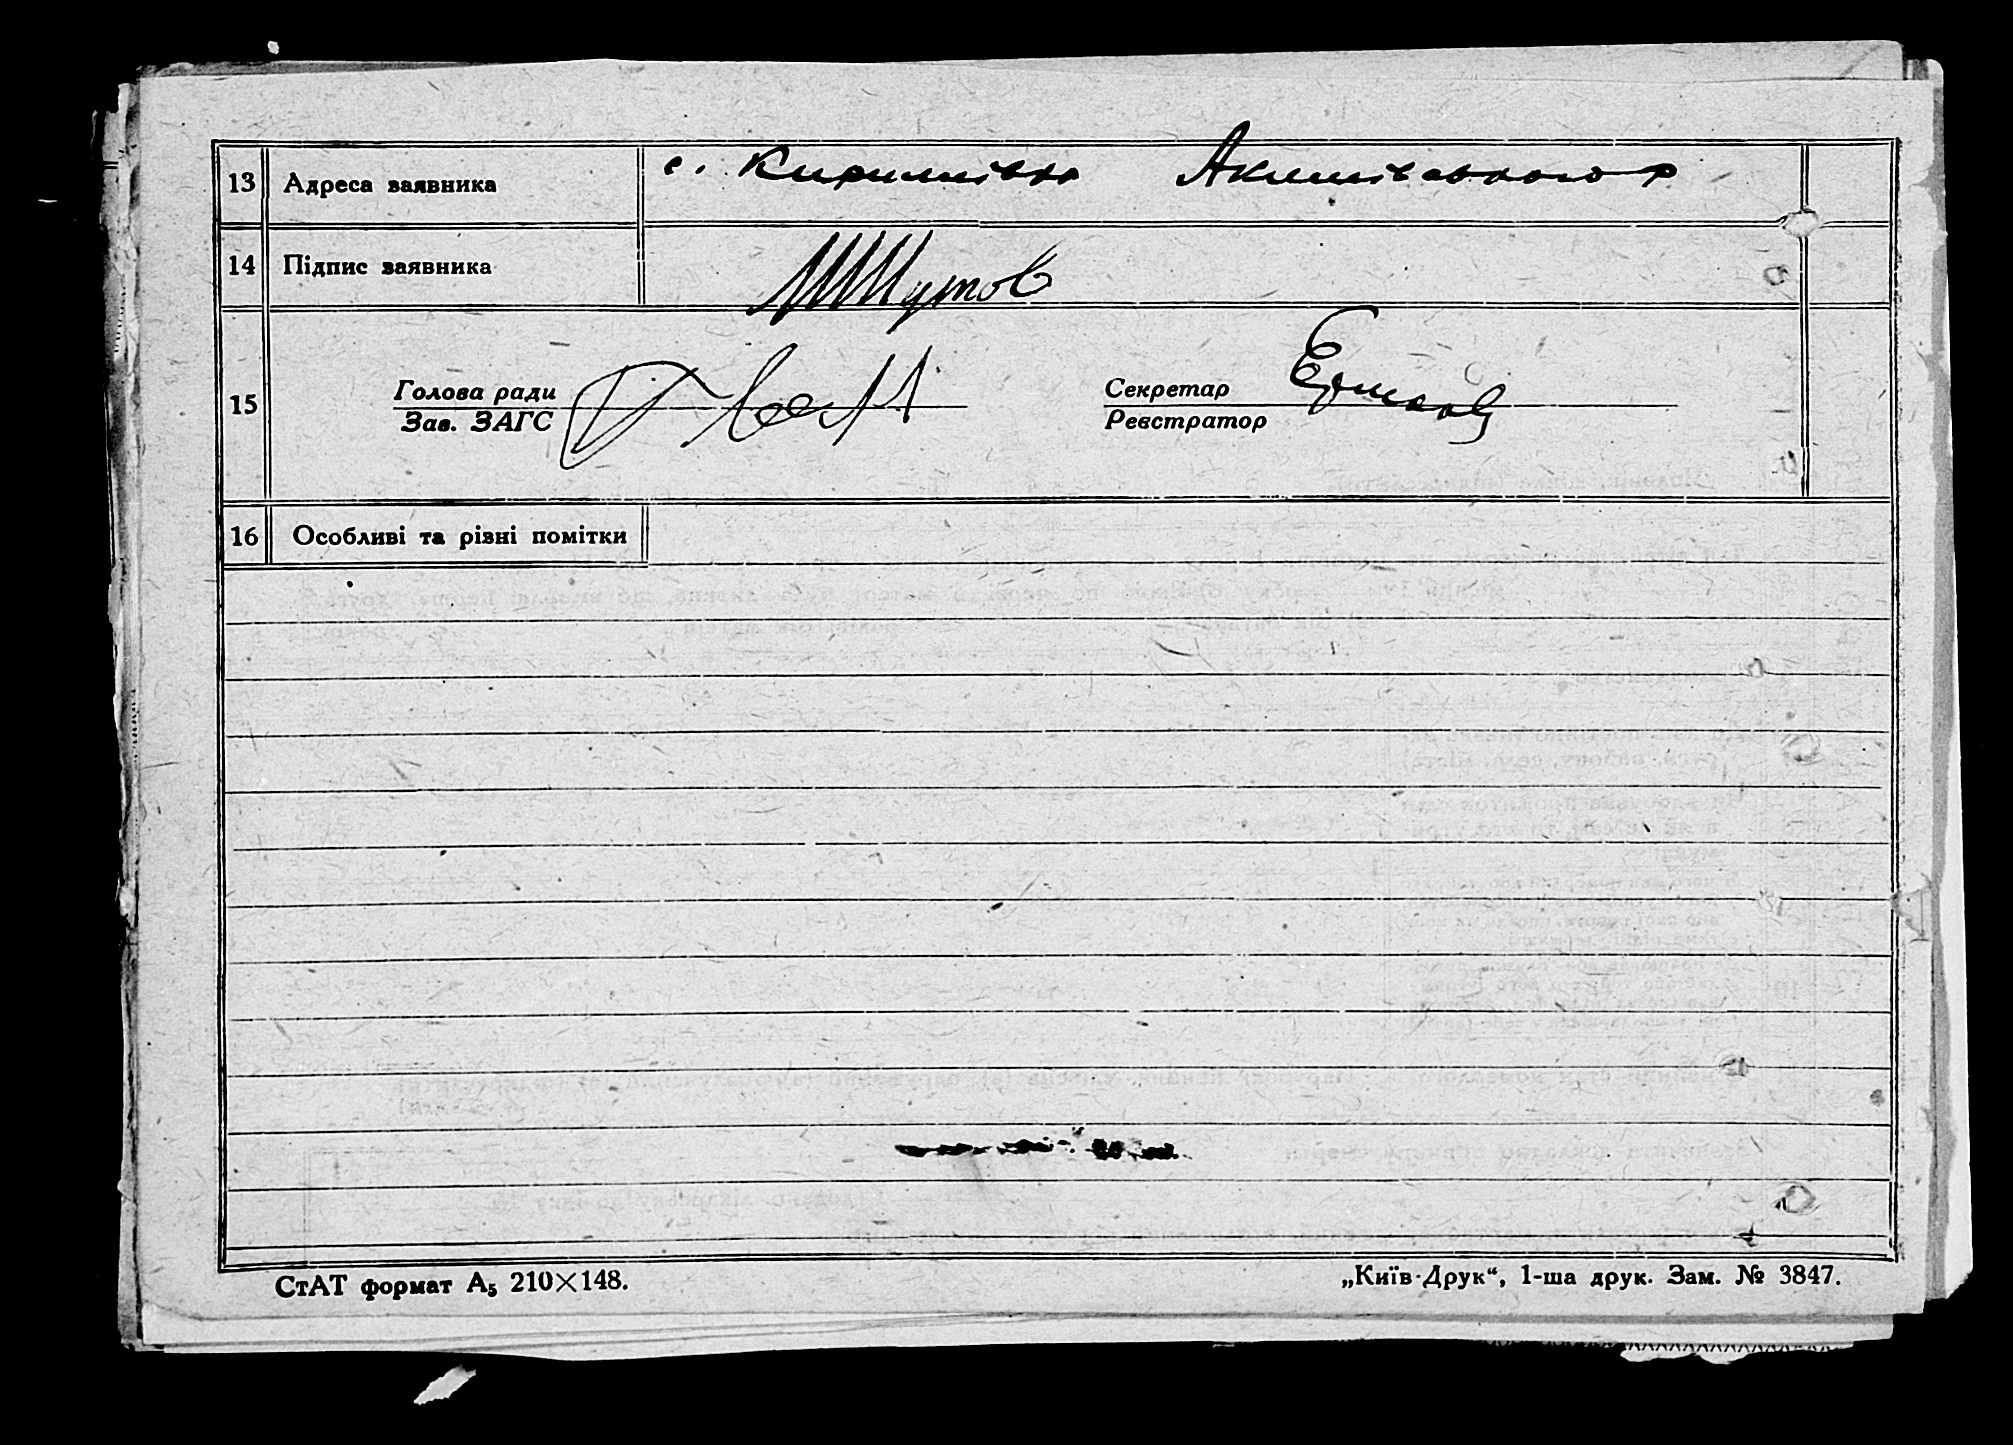 13 Адреса заявника с. Кирилівка Акимівського р
14 Підпис заявника Шутов
15 Голова ради Секретар
Зав. ЗАГС Реєстратор
16 Особливі та різні помітки
СтАТ формат А₅ 210×148. „Київ-Друк“, 1-ша друк. Зам. № 3847.